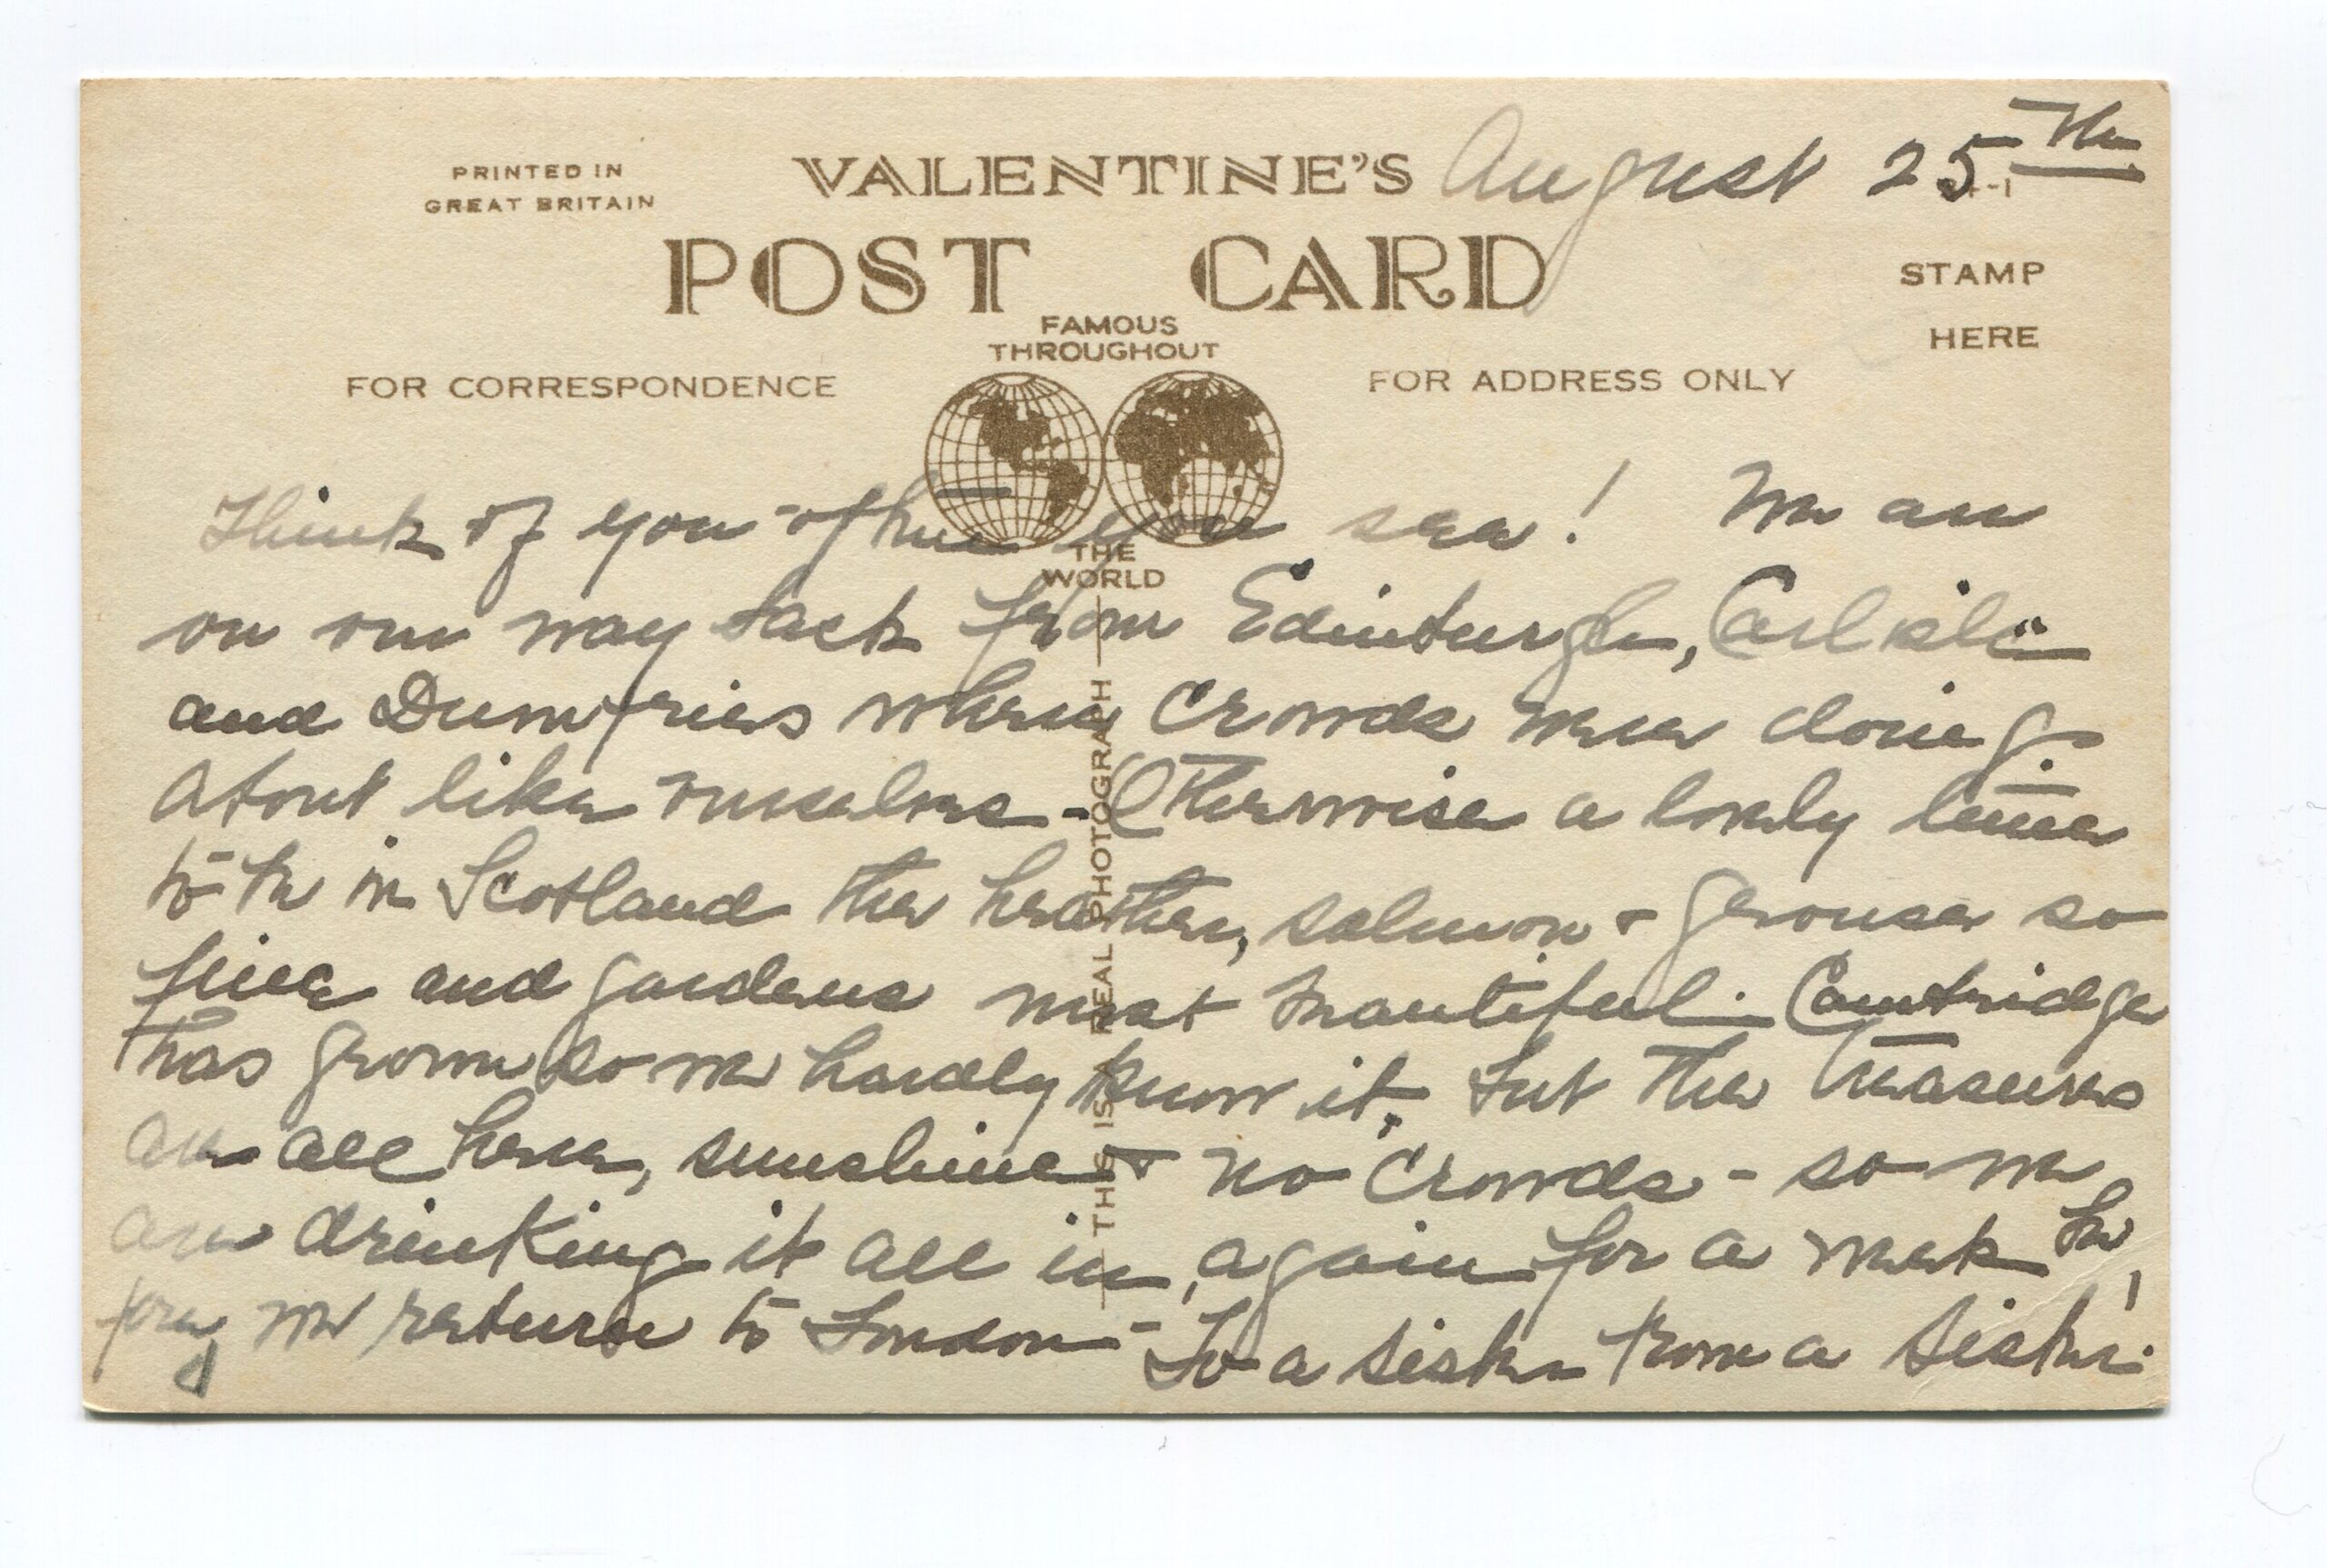 PRINTED IN
GREAT BRITAIN
VALENTINE'S
August 25th
POST CARD
STAMP
HERE
FAMOUS
THROUGHOUT
FOR CORRESPONDENCE
FOR ADDRESS ONLY
THE
WORLD
THIS IS A REAL PHOTOGRAPH
Think of you often you see! We are
on our way back from Edinburgh, Carlisle
and Dumfries where crowds were doing
about like ourselves - Otherwise a lovely time
to be in Scotland the heather, salmon & grouse so
fine and gardens most beautiful - Cambridge
has grown so we hardly know it, but the treasures
are all here, sunshine & no crowds - so we
are drinking it all in, again for a week be,
fore we return to London - To a sister from a sister.